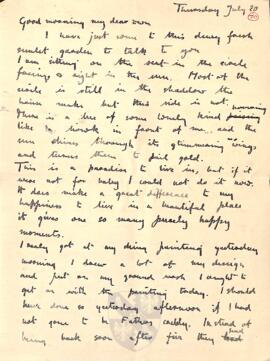 Thursday July 20
Good morning my dear
I have just come to this dewy fresh
sunlit garden to talk to you
I am sitting on the seat in the circle
facing right in the sun. Most of the
circle is still in the shadow the
house makes but this side is not.
There is a tree of some lovely kind
like in front of me and the
sun shines through its wings
and turns them to gold.
This is a paradise to live in, but if it
were not for baby I could not do it now.
It does make a great difference to my
happiness to live in a beautiful place
it gives one so many purely happy
moments.
I really got at my painting yesterday
morning I drew a lot of my design
and put on my ground work I ought to
get on with the painting today. I should
have done so yesterday afternoon if I had
not gone to Fathers. Instead of
being back soon after five they had